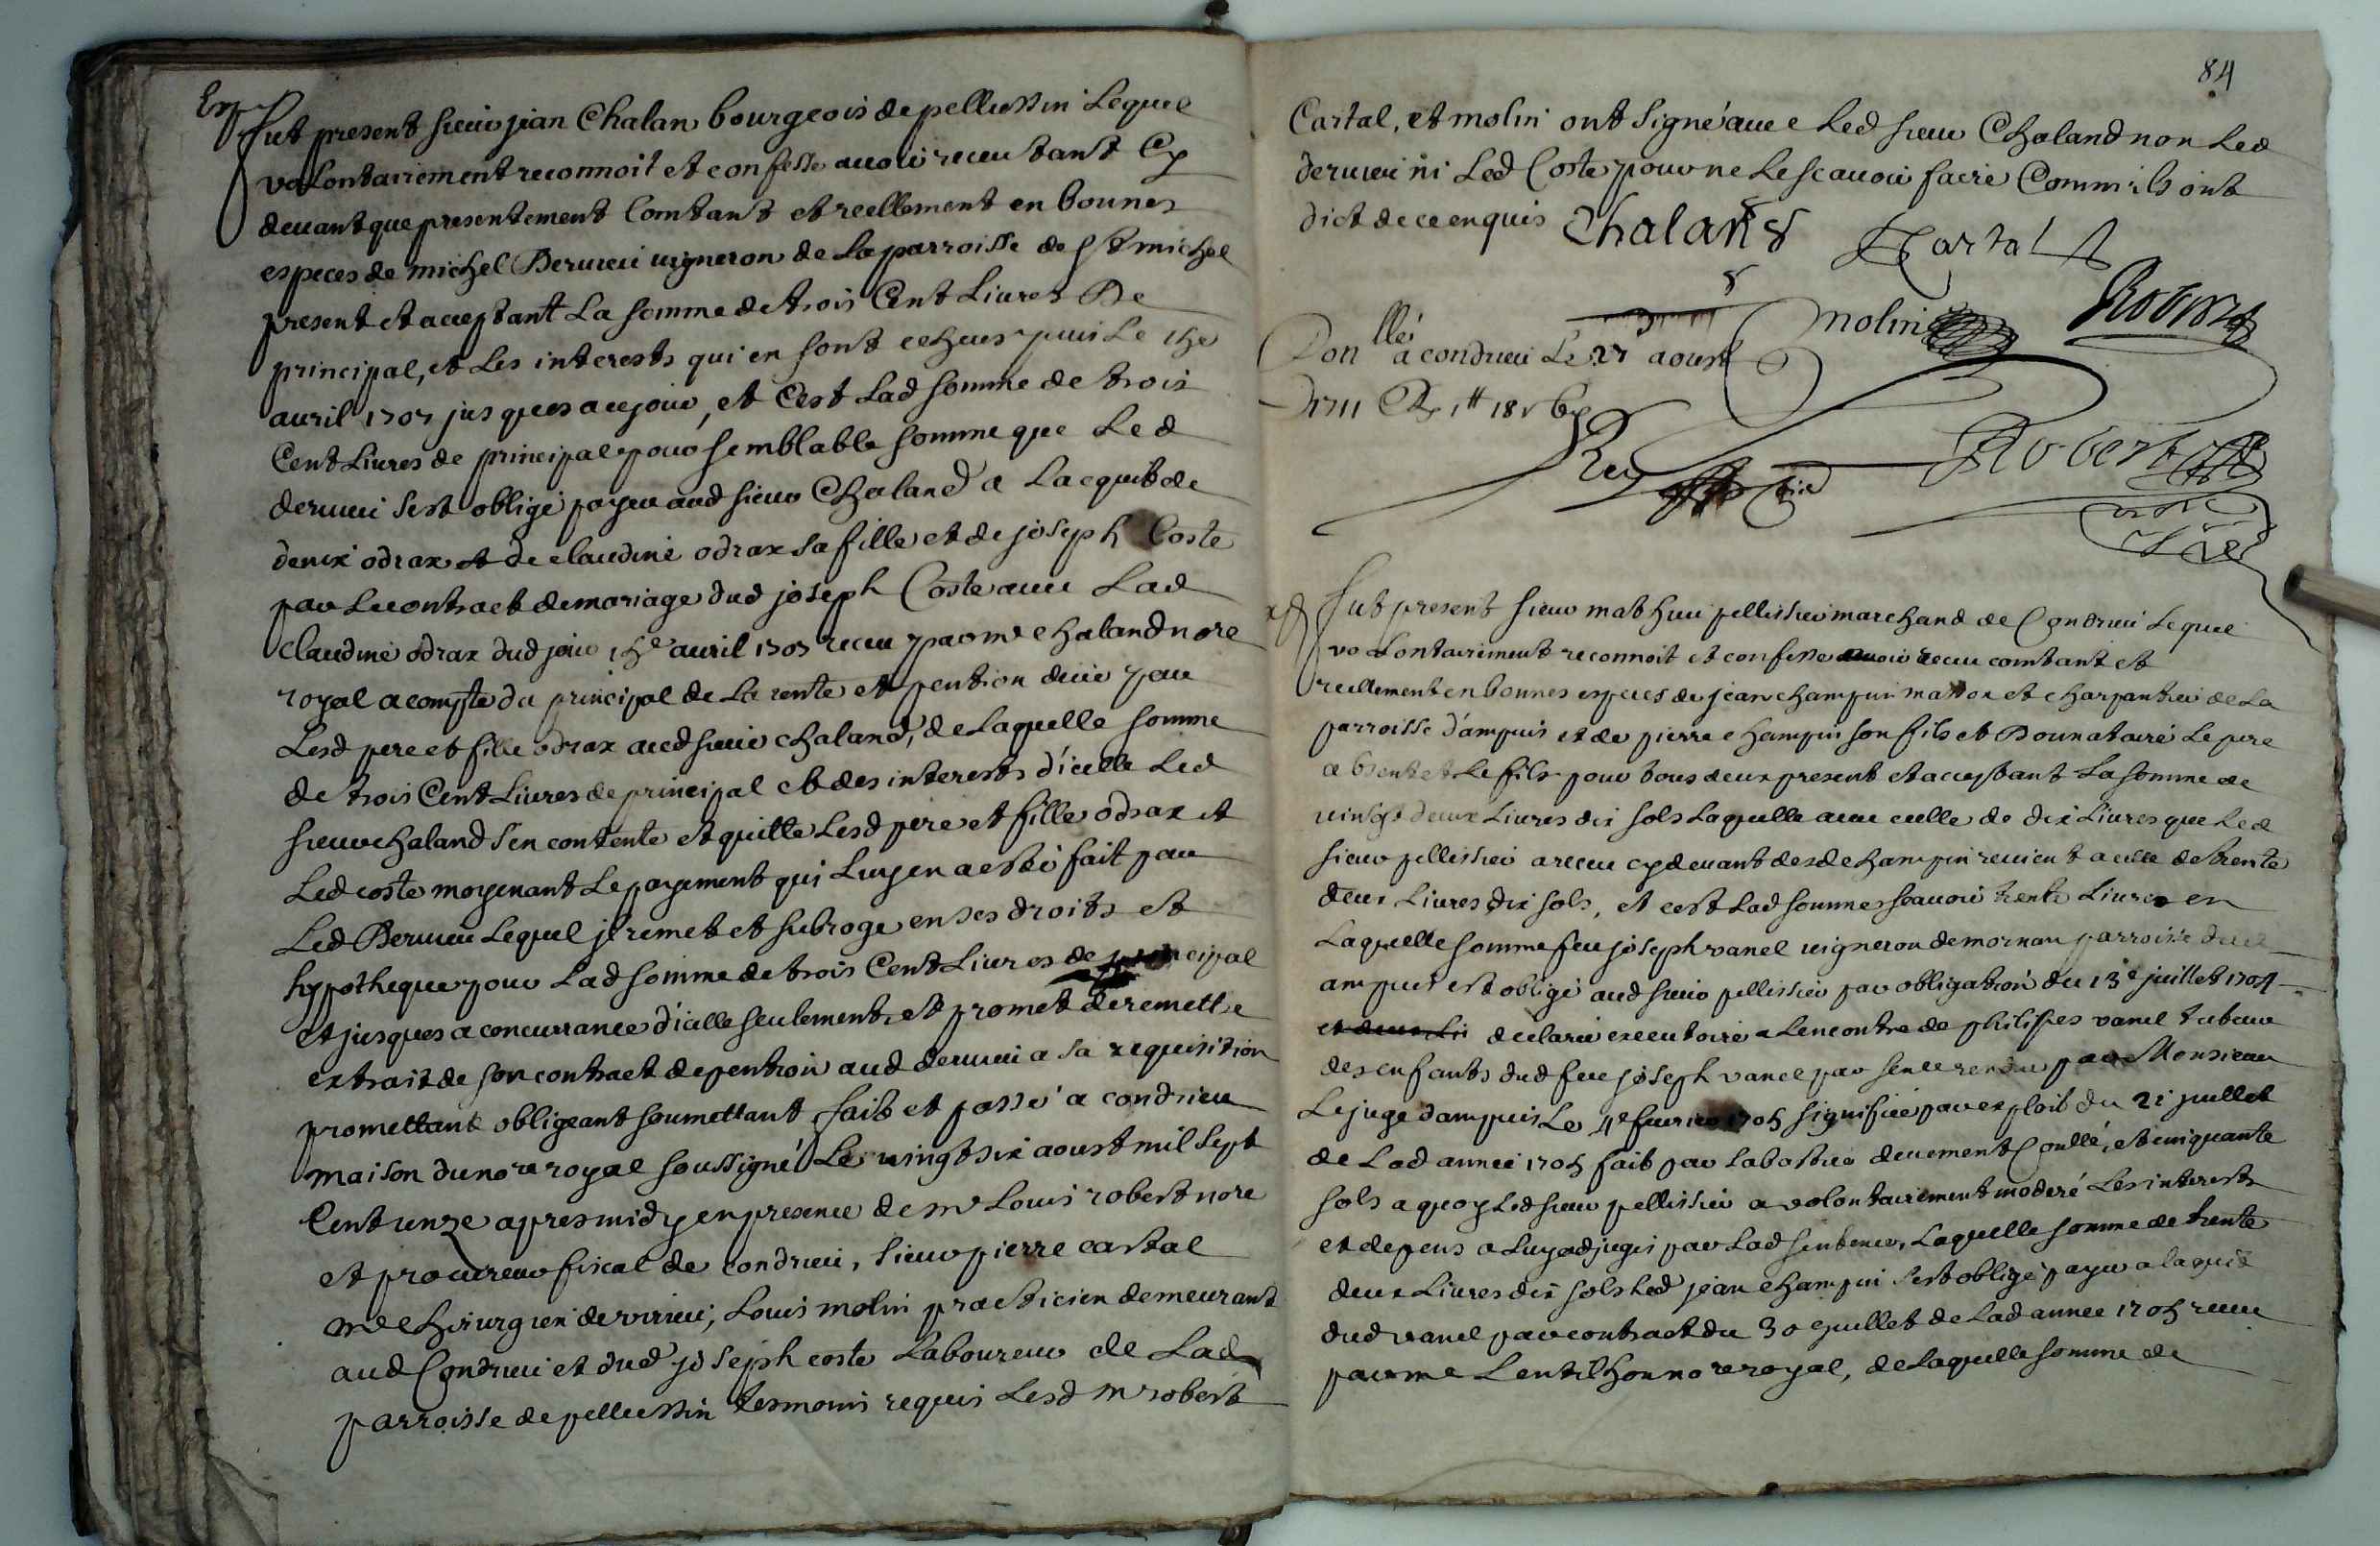 Exp
Fut present sieur jean Chalan bourgeois de pellussin Lequel
volontairement reconnoit et confesse avoir receu tant Cy
devant que presentement Comtant et reellement en bonnes
especes de michel Dervieu vigneron de La parroisse de St michel
present et acceptant La somme de trois Cent Livres De
principal, et Les interests qui en sont echeus puis Le
avril 1707 jusques aujour, et C'est Lad somme de trois
Cent Livres de principal pour semblable somme que Led
dervieu s'est obligé payer aud sieur Chaland a Lacquit de
denix odrax et de claudine odrax sa fille et de joseph Coste
par Le contract de mariage dud joseph Coste avec Lad
Claudine odrax dud jour avril 1707 receu par me chaland nore
royal a compte du principal de La rente et pention deue par
Lesd pere et fille odrax aud sieur chaland, de Laquelle somme
de trois Cent Livres de principal et des interests d'icelle Led
sieur chaland s'en contente et quitte Lesd pere et fille odrax et
Led coste moyenant Le payement qui Luy en a esté fait par
Led Dervieu Lequel jl remet et subroge en ses droits et
hypotheque pour Lad somme de trois Cent Livres de principal
et jusques a concurrance d'icelle seulement, et promet de remettre
extrait de son contract de pention aud dervieu a sa requisition
promettant obligeant soumettant fait et passé a condrieu
maison du nore royal soussigné Le vingt six aoust mil sept
Cent unze apres midy en presence de mr Louis robert nore
et procureur fiscal de Condrieu, sieur pierre cartal
me chirurgien de virieu, Louis molin practicien demeurant
aud Condrieu et dud joseph coste Laboureur de Lad
parroisse de pellussin tesmoins requis Lesd mr robert
84
Cartal, et molin ont signé avec Led sieur Chaland non Led
dervieu ni Led Coste pour ne Le scavoir faire Comm'ils ont
dict de ce enquis Chaland
Cartal
molin
Robert
Conllé a condrieu Le 27 aoust
1711
Robert
Fut present sieur mathieu pellissier marchand de Condrieu Lequel
volontairement reconnoit et confesse avoir receu comtant et
reellement en bonnes especes de jean champin masson et charpantier de La
parroisse d'ampuis et de pierre champin son fils et Donnataire Le pere
absent et Le fils pour tous deux present et acceptant La somme de
vingt deux Livres dix sols Laquelle avec celle de dix Livres que Led
sieur pellissier a receu cy devant desd champin revient a celle de trente
deux Livres dix sols, et cest Lad somme scavoir trente Livres en
Laquelle somme feu joseph vanel vigneron de mornan parroisse dud
ampuis est obligé aud sieur pellissier par obligation du 13e juillet 1704
declarée executoire a Lencontre de philipes vanel tuteur
des enfants dud feu joseph vanel par sence rendue par Monsieur
Le juge dampuis Le 4e fevrier 1705 signifiée par exploit du 21 juillet
de Lad année 1705 fait par Labastie deuement Conllé, et cinquante
sols a quoy Led sieur pellissier a volontairement moderé Les interests
et depens a Luy adjugés par Lad sentence, Laquelle somme de trente
deux Livres dix sols Led jean champin s'est obligé payer a laquit
dud vanel par contract du 30e juillet de Lad année 1705 receu
par me Lentilhon nore royal, de Laquelle somme de